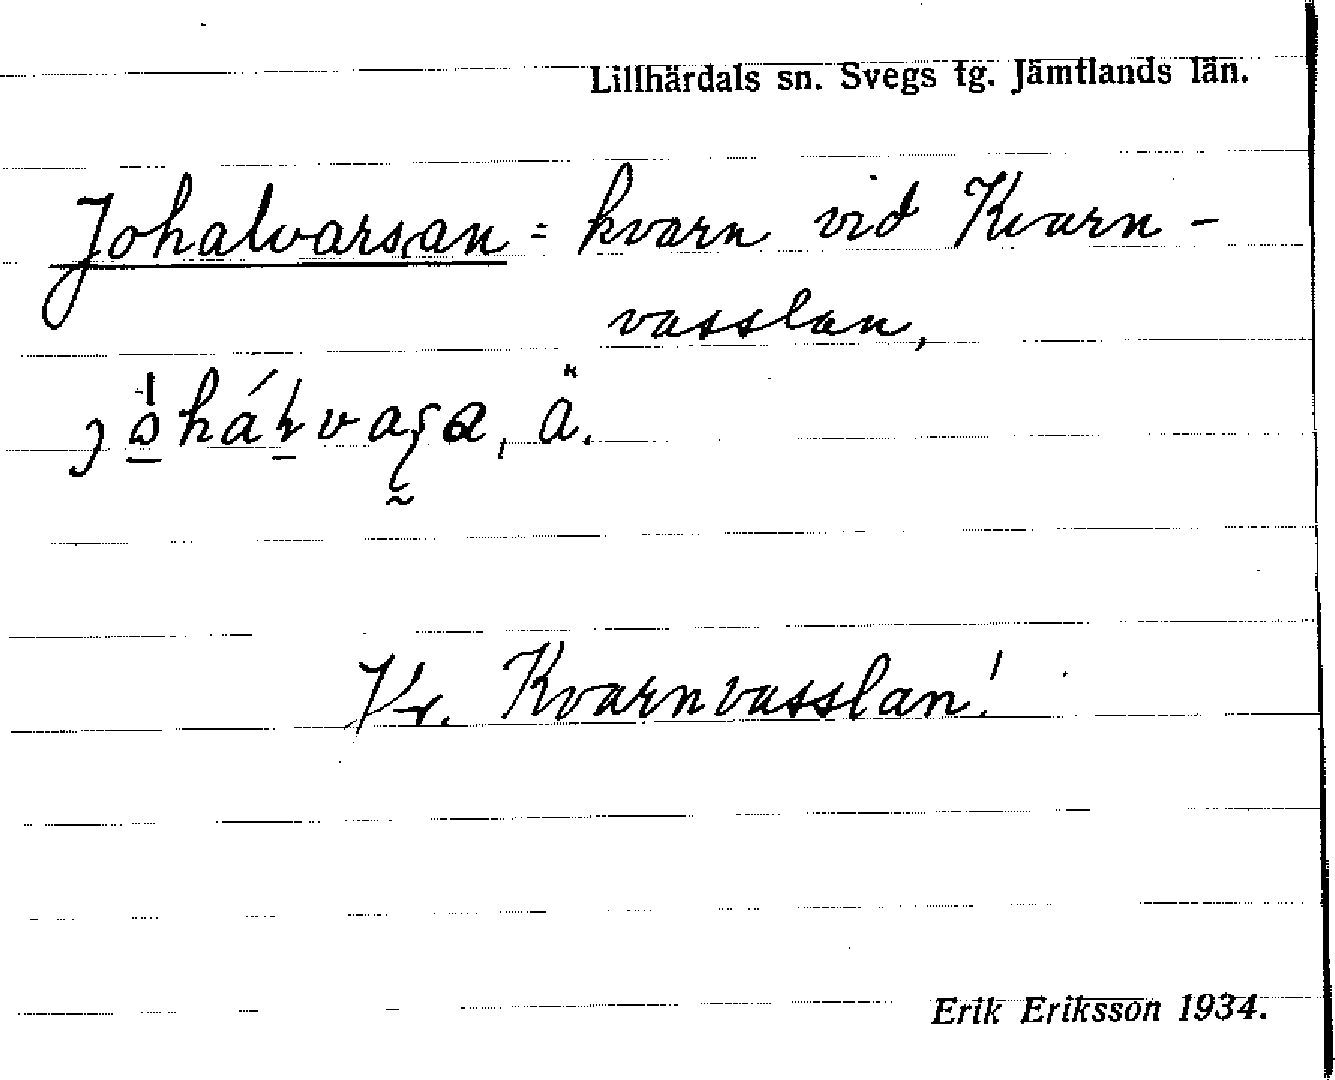 Lillhärdals sn. Svegs tg. Jämtlands län.
Johalvarsan = kvarn vid Kvarn-
vasslan,
Kr. Kvarnvasslan!
Erik Eriksson 1934.